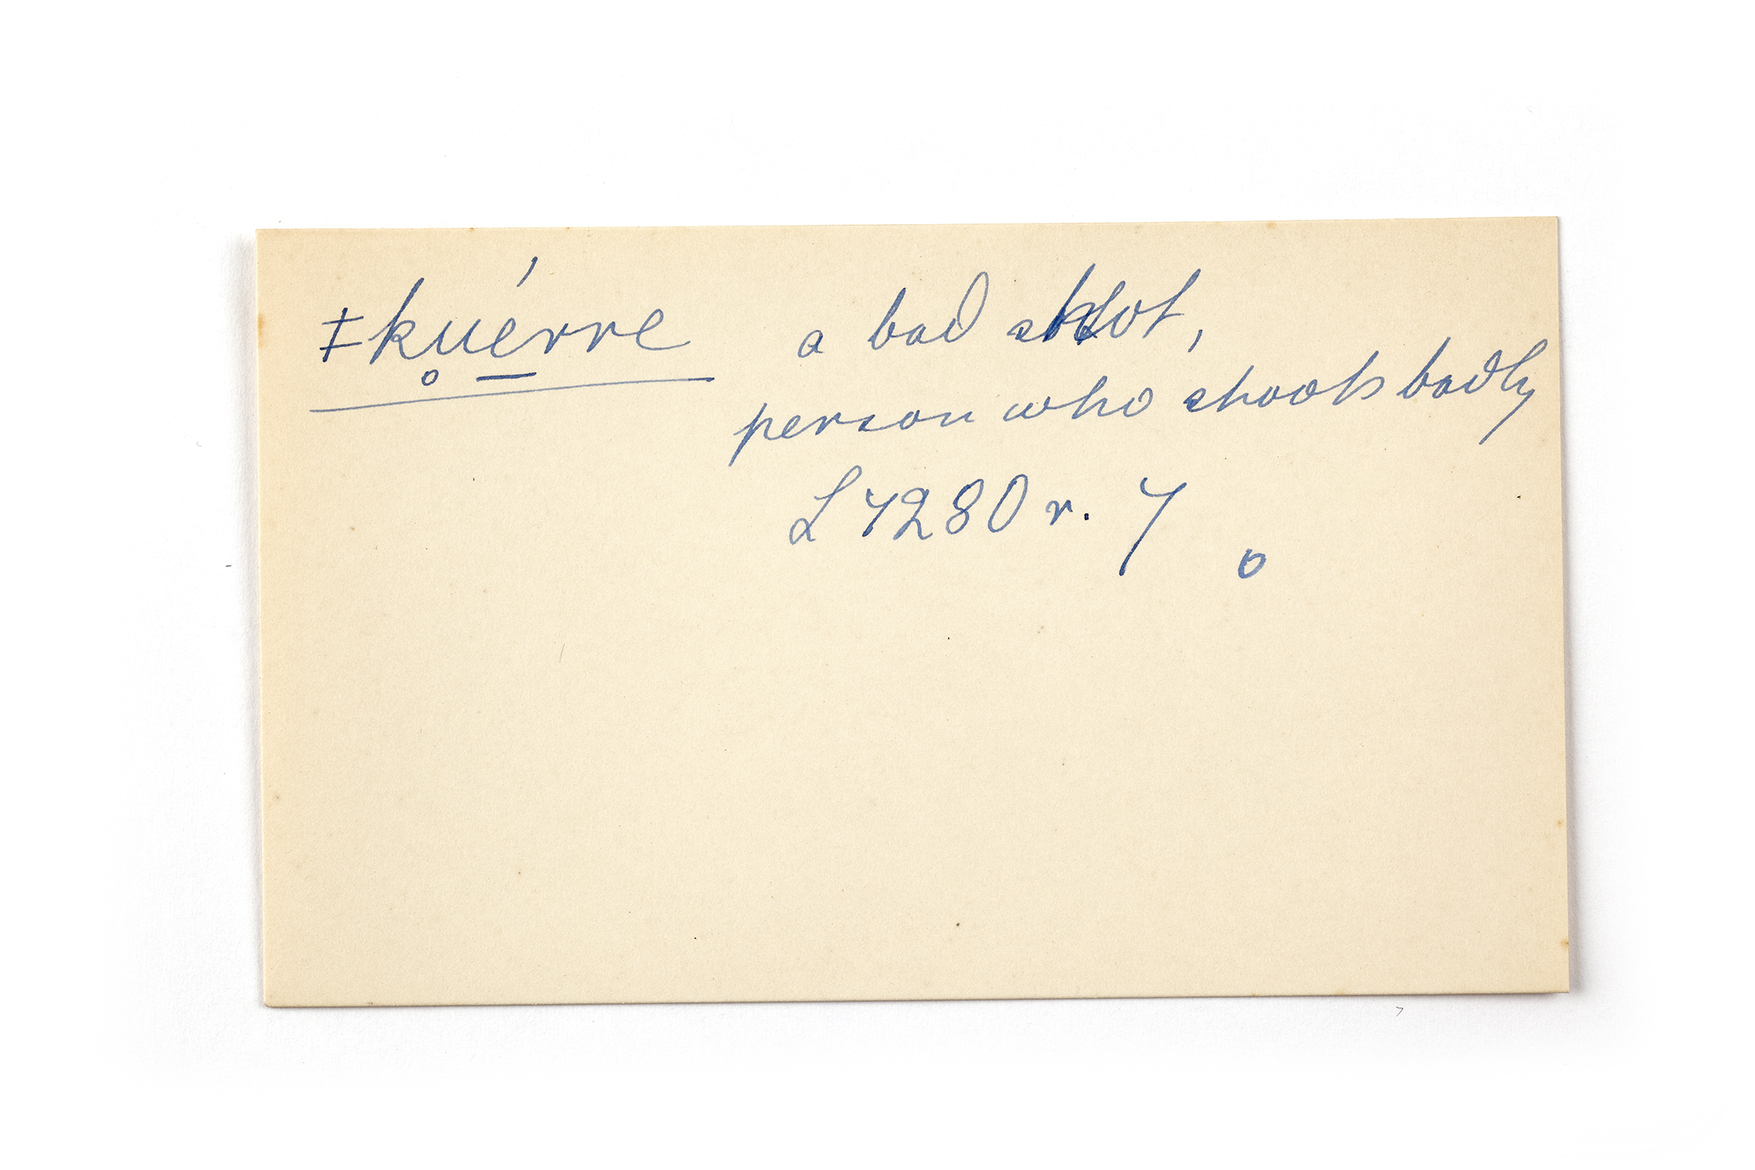 ǂkṵérre a bad shot,
person who shoots badly
L 7280 r. 7
o